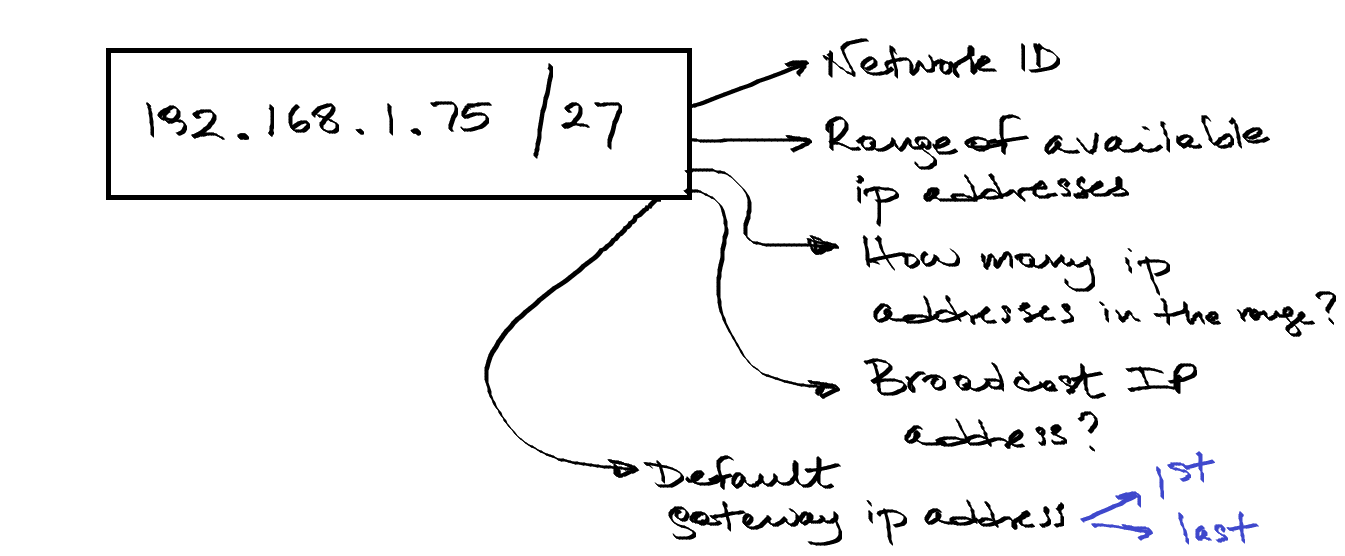 192.168.1.75 /27
Network ID
Range of available
ip addresses
How many ip
addresses in the range?
Broadcast IP
address?
Default
gateway ip address
1st
last